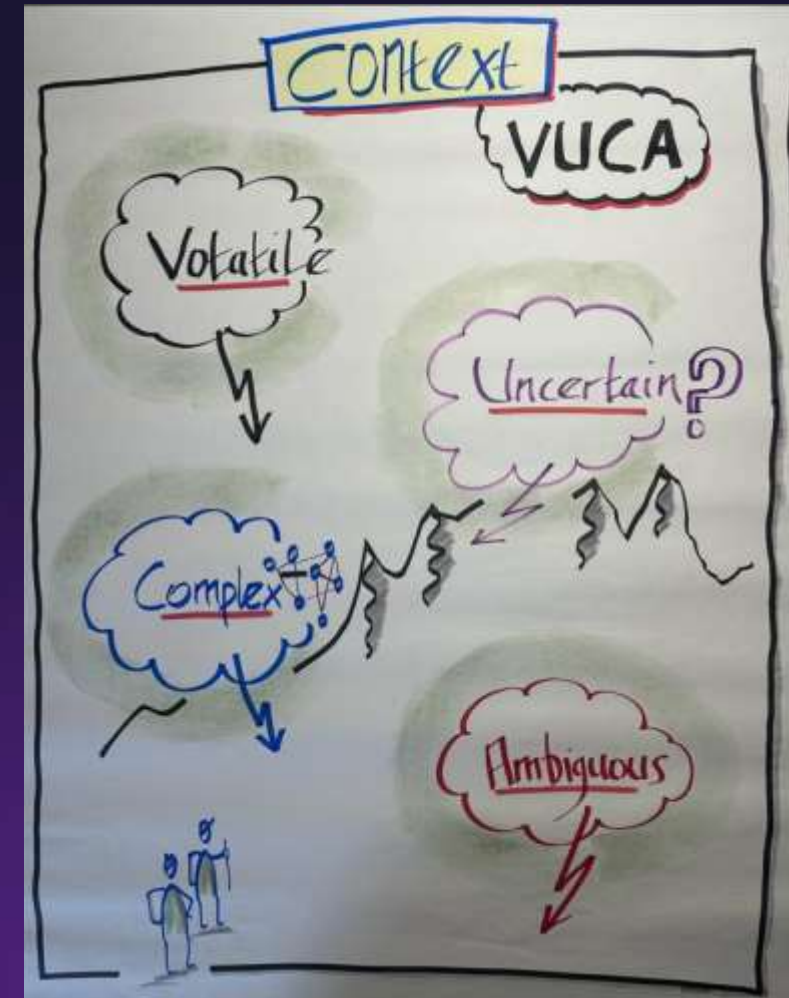 Context
VUCA
Volatile
Uncertain?
Complex
Ambiguous